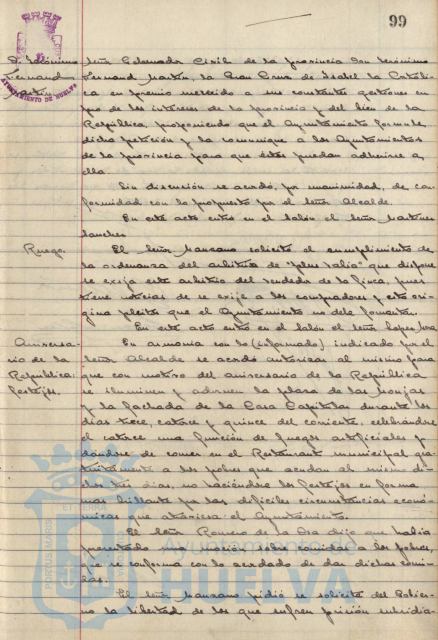 99
D. Jerónimo
Hernand
Martín
AYUNTAMIENTO DE HUELVA
señor Gobernador Civil de la provincia don Jerónimo
Hernand Martín, la Gran Cruz de Isabel la Católi-
ca en premio merecido a sus constantes gestiones en
pro de los intereses de la provincia y del bien de la
República, proponiendo que el Ayuntamiento formule
dicha petición y la comunique a los Ayuntamientos
de la provincia para que éstos puedan adherirse a
ella.
Sin discusión se acordó, por unanimidad, de con-
formidad con lo propuesto por el señor Alcalde.
En este acto entró en el salón el señor Martínez
Sanchez
Ruego.
El señor Manzano solicitó el cumplimiento de
la ordenanza del arbitrio de "plus valía" que dispone
se exija este arbitrio del vendedor de la finca, pues
tiene noticias de se exije a los compradores y esto ori-
gina pleitos que el Ayuntamiento no debe fomentar.
En este acto entró en el salón el señor Lopez
Aniversa-
rio de la
República:
Festejos.
En armonía con lo (informado) indicado por el
señor Alcalde se acordó autorizar al mismo para
que con motivo del aniversario de la República
se iluminen y adornen la plaza de las Monjas
y la fachada de la Casa Capitular durante los
días trece, catorce y quince del corriente, celebrándose
el catorce una función de fuegos artificiales y
dándose de comer en el Restaurant municipal gra-
tuitamente a los pobres que acudan al mismo di-
chos tres días, no haciéndose los festejos en forma
mas brillante por las difíciles circunstancias econó-
micas que atraviesa el Ayuntamiento.
El señor Romero de la Osa dijo que había
presentado una moción sobre comidas a los pobres,
que se conforma con lo acordado de dar dichas comi-
das.
El señor Manzano pidió se solicite del Gobier-
no la libertad de los que sufren prisión subsidia-
PORTUS MARIS
ET TERRÆ
Ayuntamiento de
HUELVA